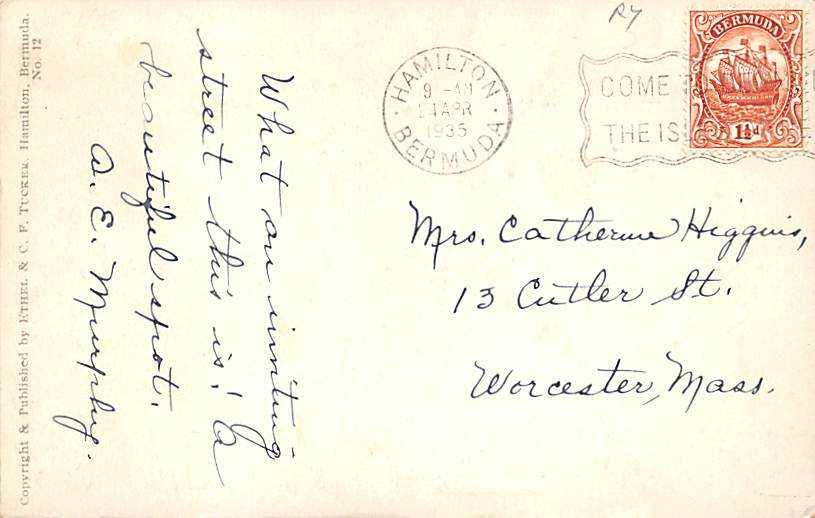 What an inviting
street this is! A
beautiful spot.
A. E. Murphy.
Mrs. Catherine Higgins,
13 Cutler St.
Worcester, Mass.
HAMILTON
9 - AM
24 APR
1935
BERMUDA
COME
THE IS
BERMUDA
1½d
Copyright & Published by ETHEL & C. F. TUCKER, Hamilton, Bermuda.
No. 12